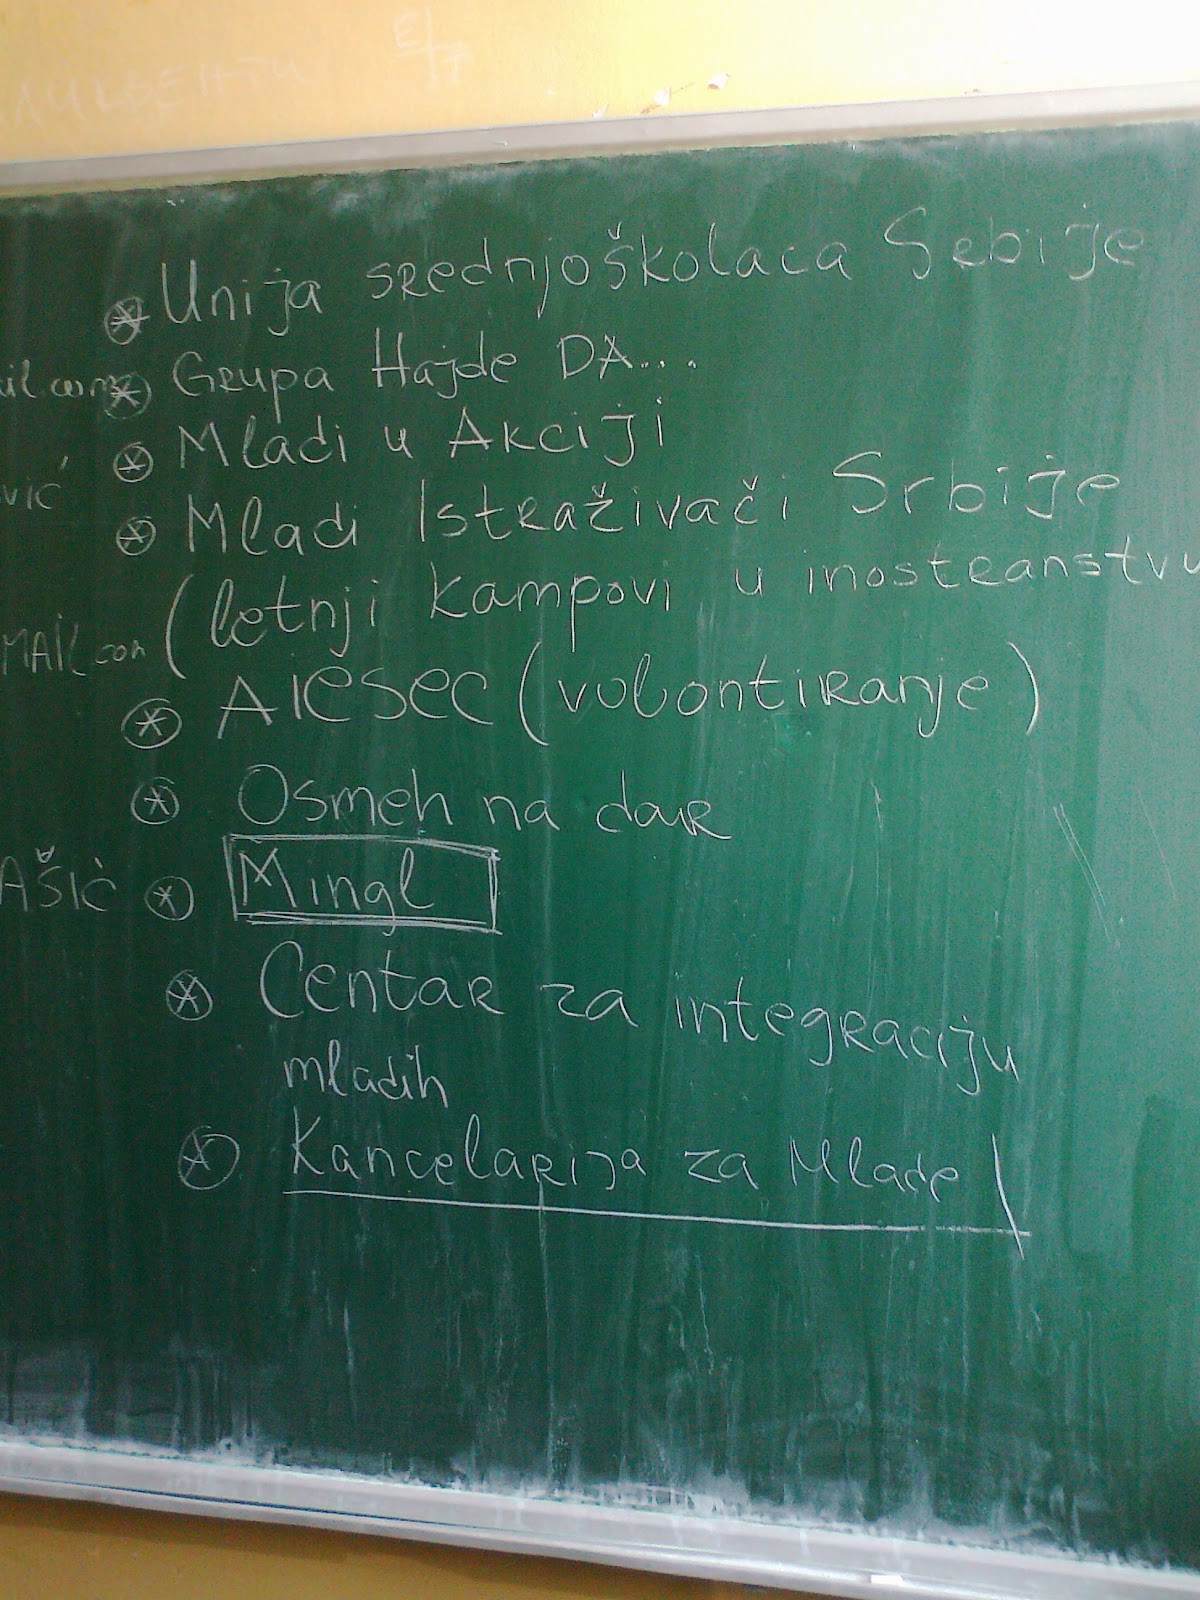 Unija srednjoškolaca Srbije
Grupa Hajde DA...
Mladi u Akciji
Mladi Istraživači Srbije
(letnji kampovi u inostranstvu
AIESEC (volontiranje)
Osmeh na dar
Mingl
Centar za integraciju
mladih
Kancelarija za Mlade
ail.com
vić
MAIL.com
AŠIĆ